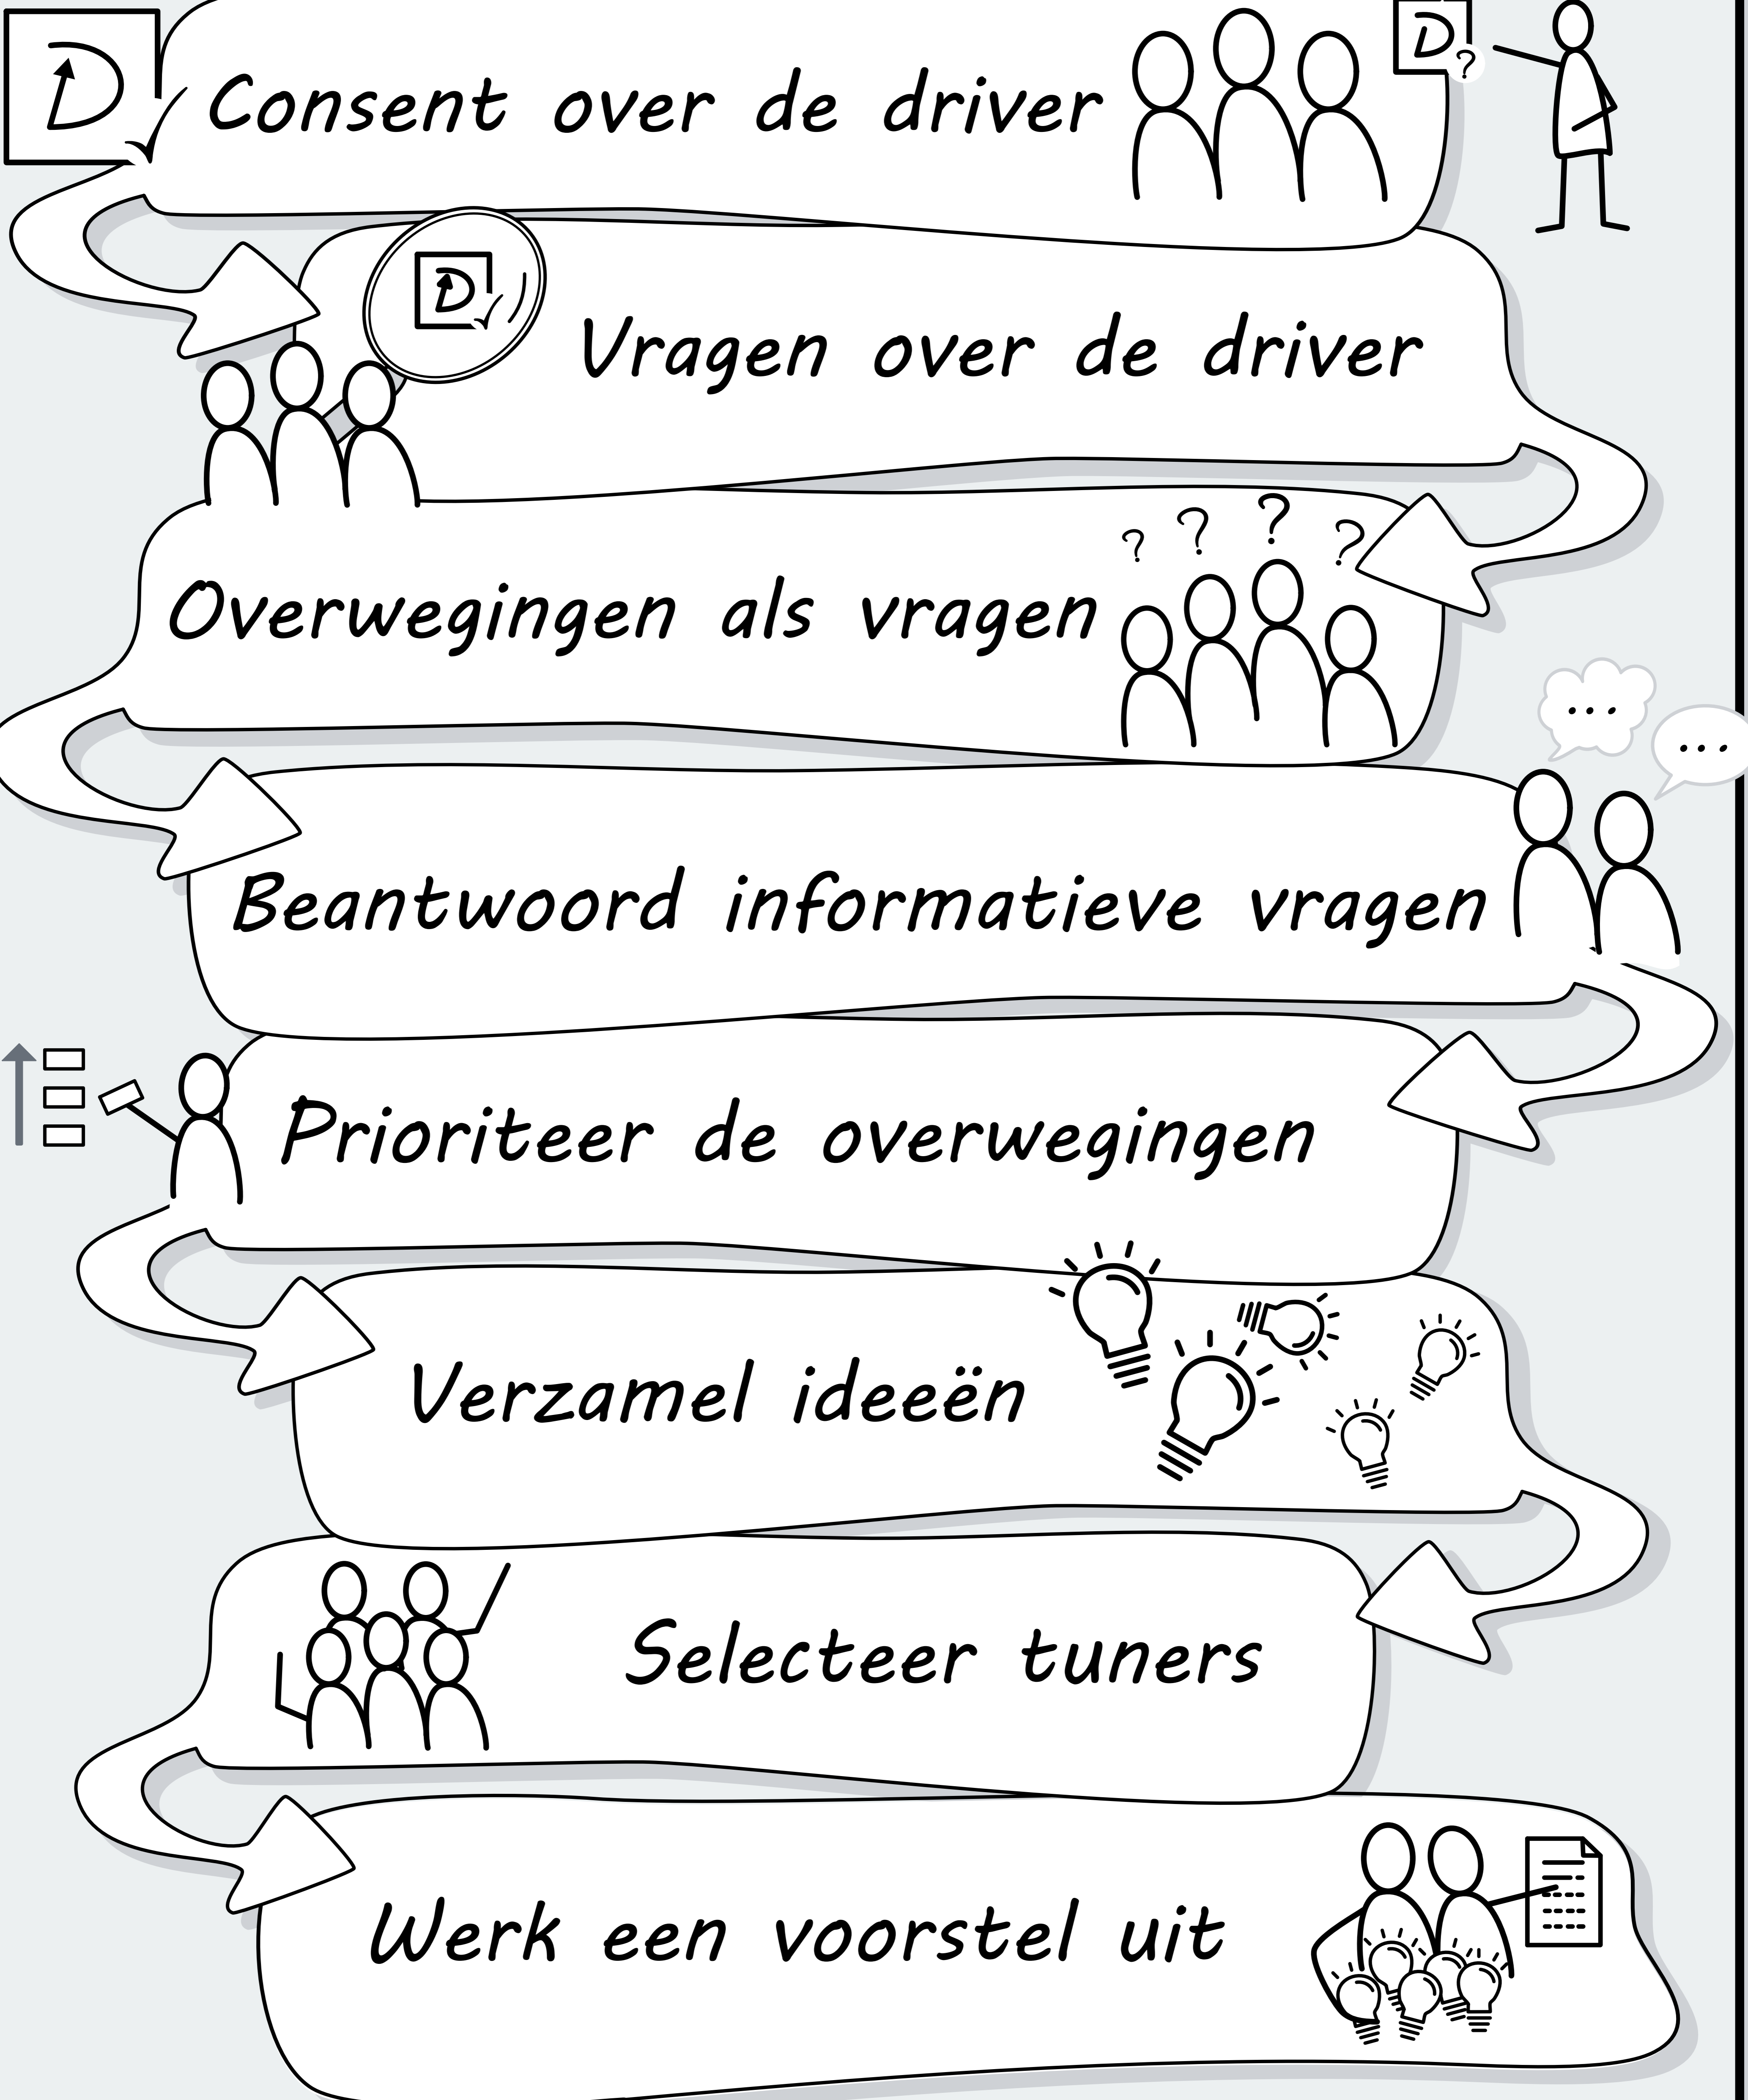 D
Consent over de driver
D ?
D
Vragen over de driver
? ? ? ?
Overwegingen als vragen
...
...
Beantwoord informatieve vragen
Prioriteer de overwegingen
Verzamel ideeën
Selecteer tuners
Werk een voorstel uit